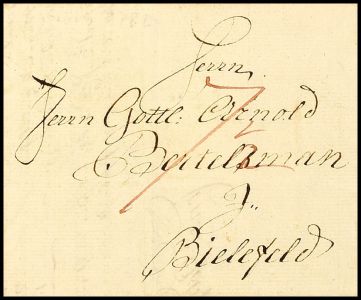 Herrn
Herrn Gottl: Arnold
Bertelsman
Bielefeld